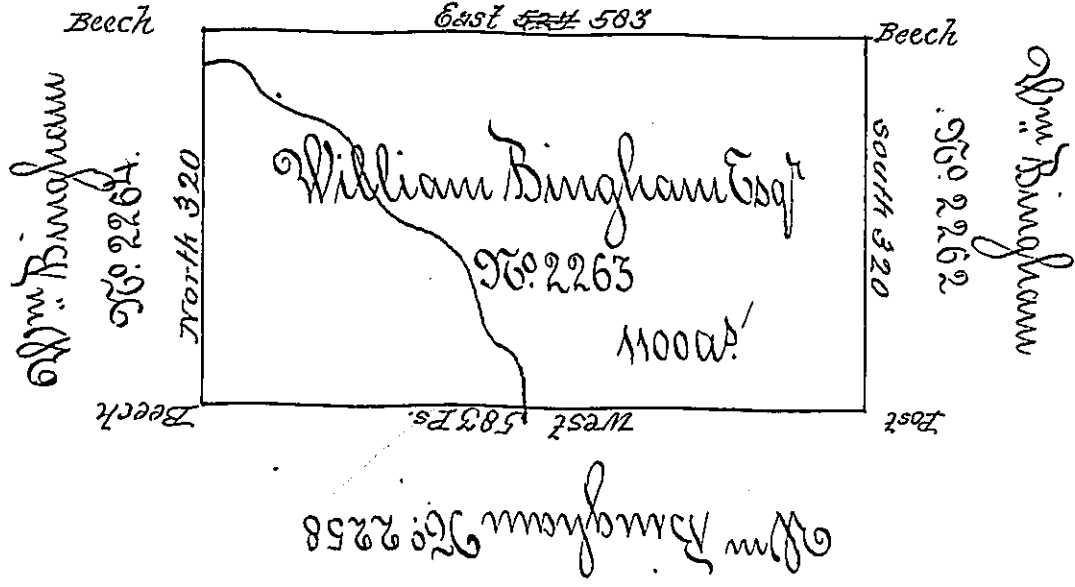 Beech
East 524 583
Beech
Wm Bingham
No. 2264.
North 320
William Bingham Esqr
No. 2263
1100 as.
south 320
No. 2262
Wm Bingham
Beech
West 583 Ps.
Post
Wm Bingham No. 2258